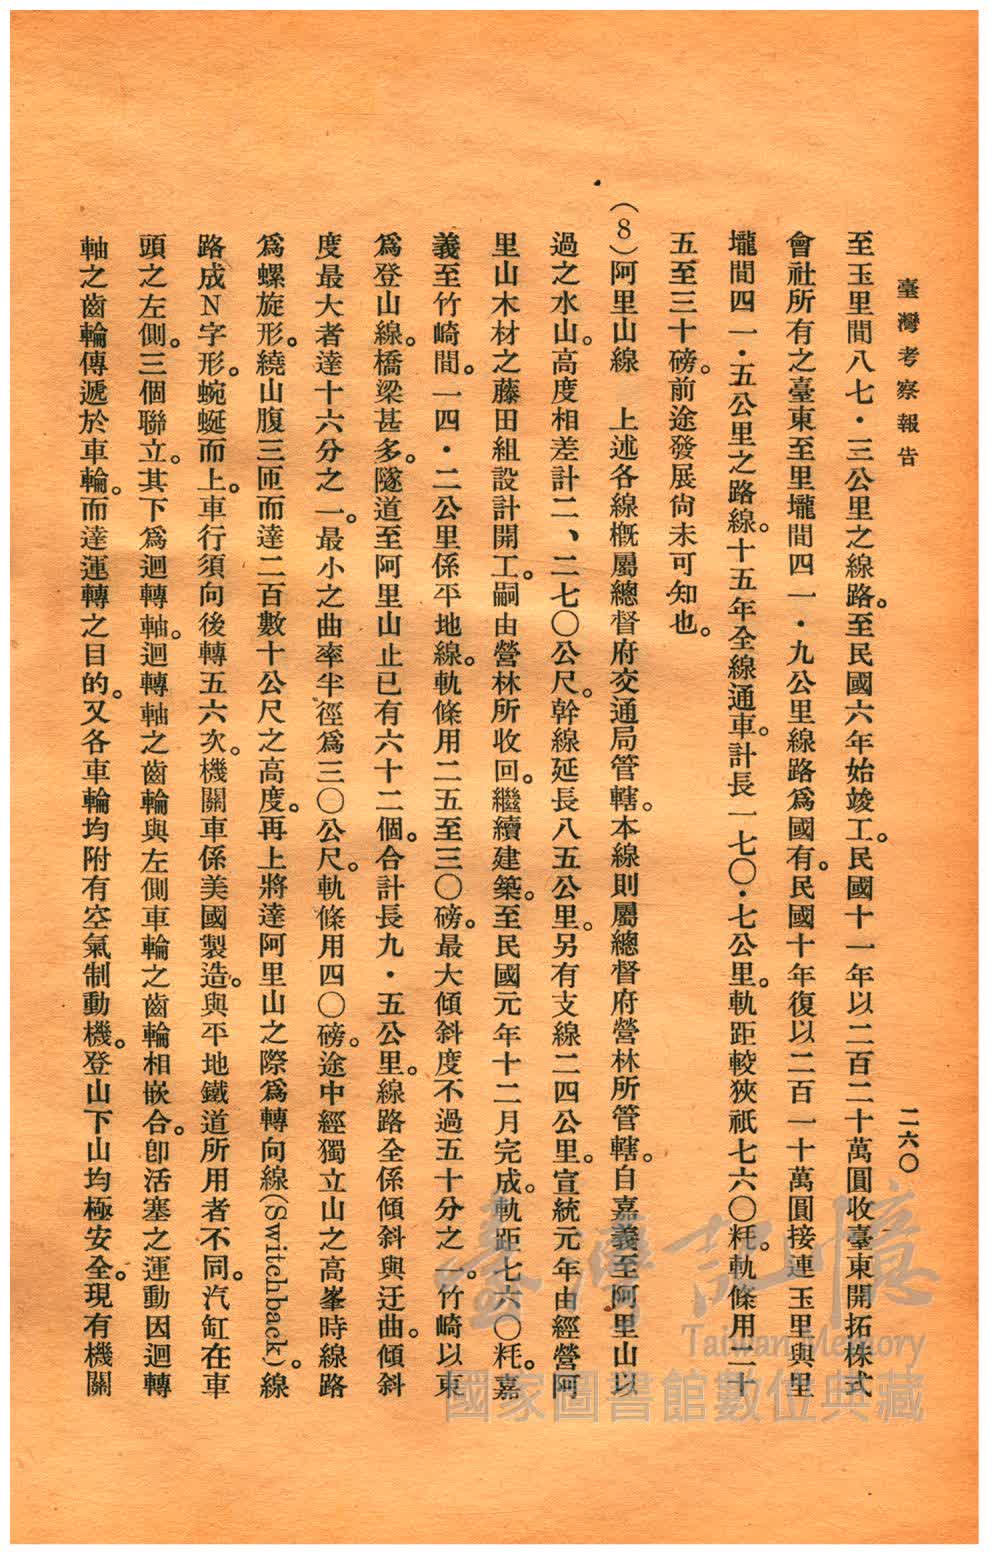 臺灣考察報告
二六〇
至玉里間八七·三公里之線路。至民國六年始竣工。民國十一年以二百二十萬圓收臺東開拓株式
會社所有之臺東至里壠間四一·九公里線路爲國有。民國十年復以二百一十萬圓接連玉里與里
壠間四一·五公里之路線。十五年全線通車。計長一七〇·七公里。軌距較狹祇七六〇粍。軌條用二十
五至三十磅。前途發展尙未可知也。
(8)阿里山線　上述各線槪屬總督府交通局管轄。本線則屬總督府營林所管轄。自嘉義至阿里山以
過之水山。高度相差計二、二七〇公尺。幹線延長八五公里。另有支線二四公里。宣統元年由經營阿
里山木材之藤田組設計開工。嗣由營林所收回。繼續建築。至民國元年十二月完成。軌距七六〇粍。嘉
義至竹崎間。一四·二公里係平地線。軌條用二五至三〇磅。最大傾斜度不過五十分之一。竹崎以東
爲登山線。橋梁甚多。隧道至阿里山止已有六十二個。合計長九·五公里。線路全係傾斜與迂曲。傾斜
度最大者達十六分之一。最小之曲率半徑爲三〇公尺。軌條用四〇磅。途中經獨立山之高峯時線路
爲螺旋形。繞山腹三匝而達二百數十公尺之高度。再上將達阿里山之際爲轉向線(Switchback)。線
路成N字形。蜿蜒而上。車行須向後轉五六次。機關車係美國製造。與平地鐵道所用者不同。汽缸在車
頭之左側。三個聯立。其下爲迴轉軸。迴轉軸之齒輪與左側車輪之齒輪相嵌合。卽活塞之運動因迴轉
軸之齒輪傳遞於車輪。而達運轉之目的。又各車輪均附有空氣制動機。登山下山均極安全。現有機關
臺灣記憶
Taiwan Memory
國家圖書館數位典藏